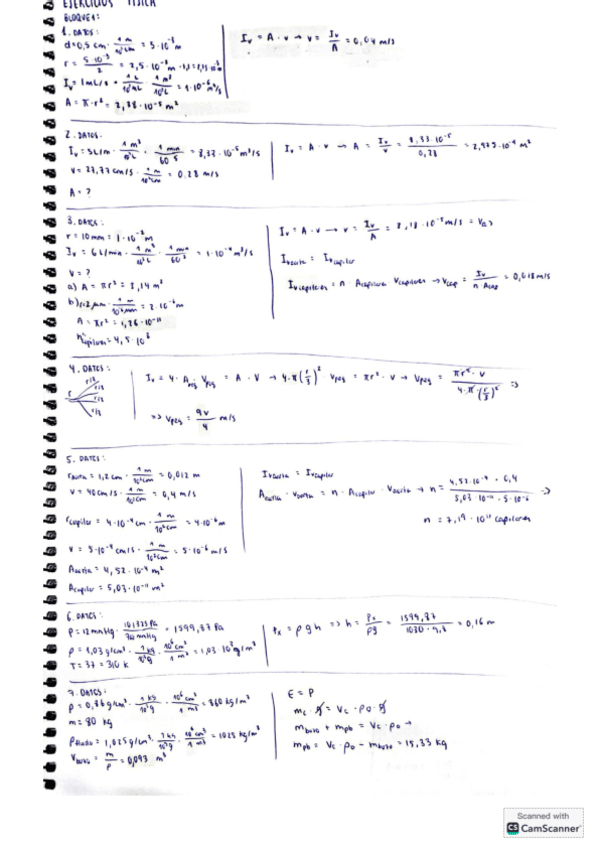 EJERCICIOS FÍSICA
BLOQUE 1:
1. DATOS:
d = 0,5 cm · 1 m / 10² cm = 5·10⁻³ m
r = 5·10⁻³ / 2 = 2,5·10⁻³ m
Iv = 1 mL/s · 1 L / 10³ mL · 1 m³ / 10³ L = 1·10⁻⁶ m³/s
A = π·r² =
Iv = A · v → v = Iv / A = 0,04 m/s
2. DATOS:
Iv = 5 L/m · 1 m³ / 10³ L · 1 min / 60 s = 8,33·10⁻⁵ m³/s
· 1 m / 10² cm = 0,28 m/s
A = ?
Iv = A · v → A = Iv / v = 8,33·10⁻⁵ / 0,28 = 2,975·10⁻⁴ m²
3. DATOS:
r = 10 mm = 1·10⁻² m
Iv = 6 L/min · 1 m³ / 10³ L · 1 min / 60 s = 1·10⁻⁴ m³/s
v = ?
a) A = πr² =
b) r = 2 μm · = 2·10⁻⁶ m
A = πr² = 1,26·10⁻¹¹
nº capilares = 4,5·10⁸
Iv = A · v → v = Iv / A =
Iv aorta = Iv capilar
Iv capilares = n · A capilares · v capilares → v cap = Iv / n A cap = 0,018 m/s
4. DATOS:
r r/3 r/3 r/3 r/3
Iv = 4 · A peq v peq = A · v → 4·π(r/3)² v peq = πr² · v → v peq = πr² · v / 4·π·(r/3)² =>
=> v peq = 9v / 4 m/s
5. DATOS:
r aorta = 1,2 cm · 1 m / 10² cm = 0,012 m
v = 40 cm/s · 1 m / 10² cm = 0,4 m/s
r capilar = 4·10⁻⁴ cm · 1 m / 10² cm = 4·10⁻⁶ m
v = 5·10⁻⁴ cm/s · 1 m / 10² cm = 5·10⁻⁶ m/s
A aorta = 4,52·10⁻⁴ m²
A capilar = 5,03·10⁻¹¹ m²
Iv aorta = Iv capilar
A aorta · v aorta = n · A capilar · v aorta → n = 4,52·10⁻⁴ · 0,4 / 5,03·10⁻¹¹ · 5·10⁻⁶ =>
n = 7,19·10¹¹ capilares
6. DATOS:
P = 12 mmHg · 101325 Pa / 760 mmHg = 1599,87 Pa
ρ = 1,03 g/cm³ · 1 kg / 10³ g · 10⁶ cm³ / 1 m³ = 1,03·10³ g/m³
T = 37 = 310 K
= ρ g h => h = / ρg = 1599,87 / 1030 · 9,8 = 0,16 m
7. DATOS:
ρ = 0,86 g/cm³ · 1 kg / 10³ g · 10⁶ cm³ / 1 m³ = 860 kg/m³
m = 80 kg
ρ fluido = 1,025 g/cm³ · 1 kg / 10³ g · 10⁶ cm³ / 1 m³ = 1025 kg/m³
V buzo = m / ρ = 0,093 m³
E = P
mc · g = Vc · ρo · g
m buzo + m pb = Vc · ρo →
m pb = Vc · ρo − m buzo = 15,33 kg
Scanned with
CS CamScanner